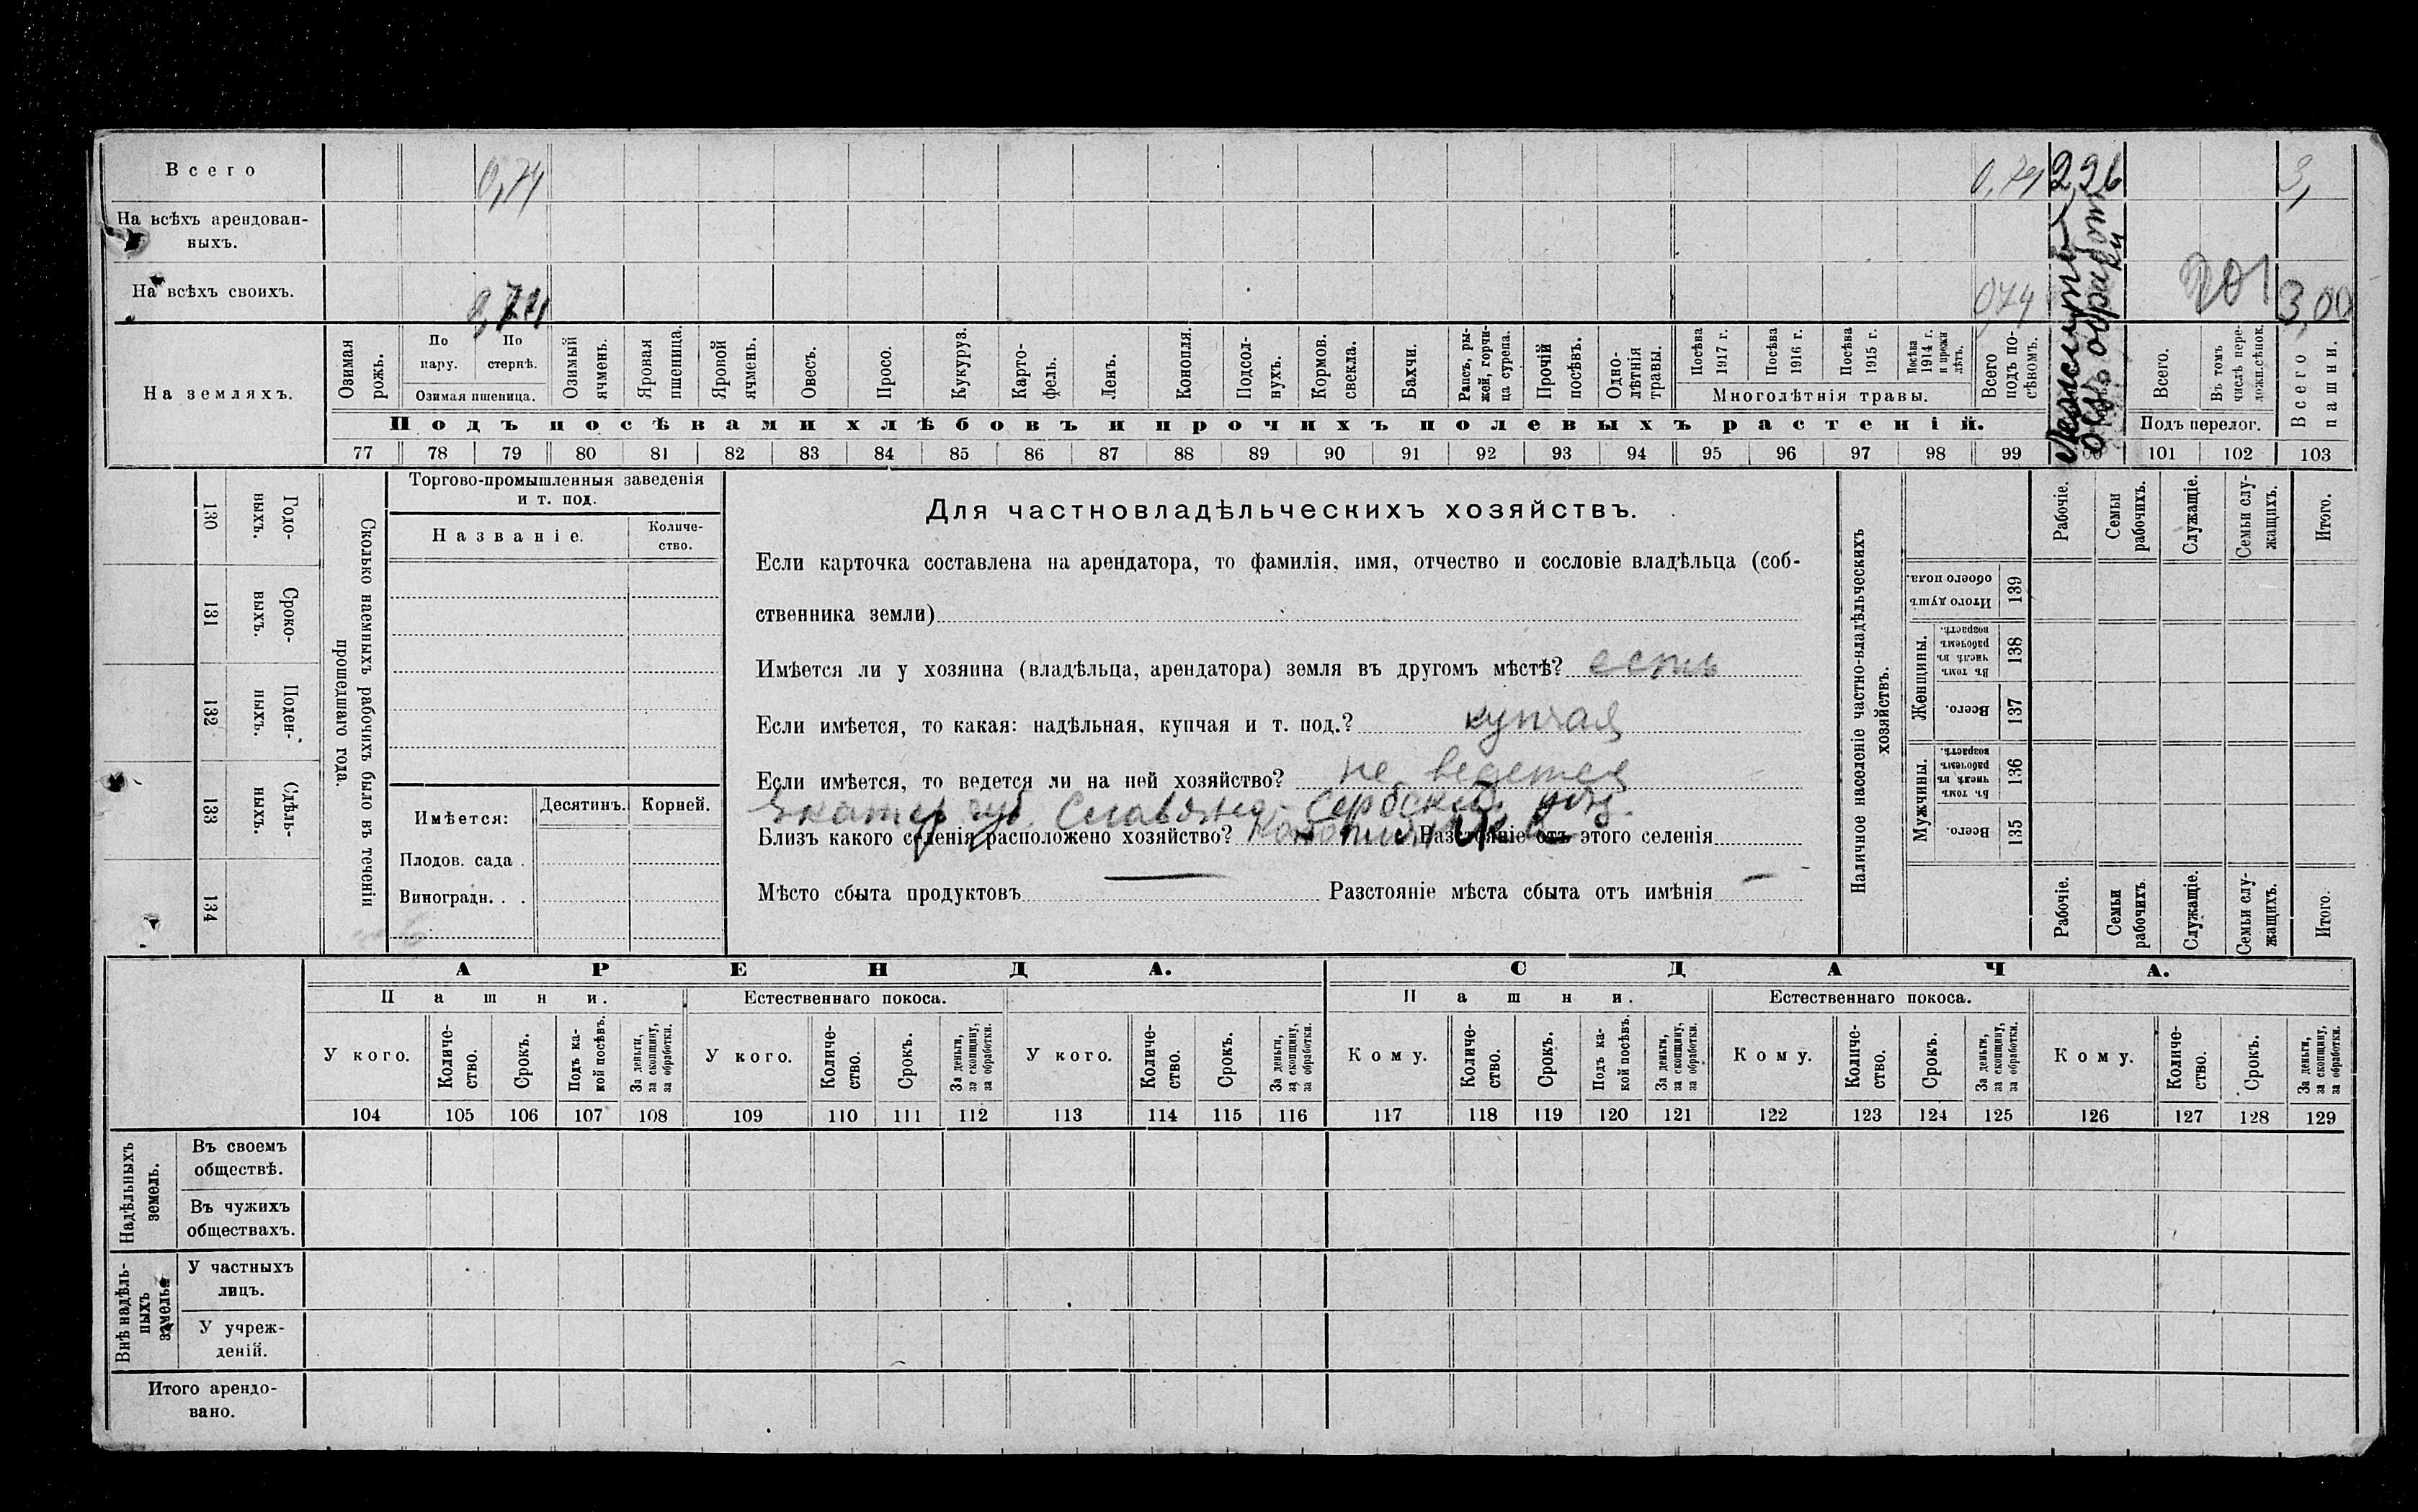 Всего 0,74 0,74 2,26 3,
На всѣхъ арендован-
ныхъ.
На всѣхъ своихъ. 0,74 0,74 3,00
На земляхъ.
Озимая рожь.
По пару.
По стернѣ.
Озимая пшеница.
Озимый ячмень.
Яровая пшеница.
Яровой ячмень.
Овесъ.
Просо.
Кукуруз.
Карто-
фель.
Ленъ.
Конопля.
Подсол-
нухъ.
Кормов.
свекла.
Бахчи.
Рапсъ, ры-
жей, горчи-
ца сурепа.
Прочій посѣвъ.
Одно-
лѣтнія травы.
Посѣва 1917 г.
Посѣва 1916 г.
Посѣва 1915 г.
Посѣва 1914 г. и прежн лѣтъ.
Многолѣтнія травы.
Всего подъ по-
сѣвомъ.
Всего.
Въ томъ числѣ пере-
ложн.сѣнок.
Подъ перелог.
Всего пашни.
Подъ посѣвами хлѣбовъ и прочихъ полевыхъ растеній.
77 78 79 80 81 82 83 84 85 86 87 88 89 90 91 92 93 94 95 96 97 98 99 101 102 103
130 Годо-
выхъ.
131 Сроко-
выхъ.
132 Поден-
ныхъ.
133 Сдѣль-
ныхъ.
134
Сколько наемныхъ рабочихъ было въ теченіи
прошедшаго года.
Торгово-промышленныя заведенія
и т. под.
Названіе.
Количе-
ство.
Имѣется:
Десятинъ.
Корней.
Плодов. сада .
Виноградн. . .
Для частновладѣльческихъ хозяйствъ.
Если карточка составлена на арендатора, то фамилія, имя, отчество и сословіе владѣльца (соб-
ственника земли)
Имѣется ли у хозяина (владѣльца, арендатора) земля въ другомъ мѣстѣ? есть
Если имѣется, то какая: надѣльная, купчая и т. под.? купчая
Если имѣется, то ведется ли на ней хозяйство? не ведется
Екатер губ. Славяно-Сербскій уѣз.
Близъ какого селенія расположено хозяйство? Разстояніе отъ этого селенія
Мѣсто сбыта продуктовъ — Разстояніе мѣста сбыта отъ имѣнія —
Наличное населеніе частно-владѣльческихъ
хозяйствъ.
Итого душъ обоего пола. 139
Женщины.
Въ томъ числѣ въ рабочемъ возрастѣ. 138
Всего. 137
Мужчины.
Въ томъ числѣ въ рабочемъ возрастѣ. 136
Всего. 135
Рабочіе.
Семьи рабочихъ.
Служащіе.
Семьи слу-
жащихъ.
Итого.
Рабочіе.
Семьи рабочихъ
Служащіе.
Семьи слу-
жащихъ.
Итого.
АРЕНДА. СДАЧА.
Пашни. Естественнаго покоса. Пашни. Естественнаго покоса.
У кого.
Количе-
ство.
Срокъ.
Подъ ка-
кой посѣвъ.
За деньги,
за скопщину,
за обработки.
У кого.
Количе-
ство.
Срокъ.
За деньги,
за скопщину,
за обработки.
У кого.
Количе-
ство.
Срокъ.
За деньги,
за скопщину,
за обработки.
Кому.
Количе-
ство.
Срокъ.
Подъ ка-
кой посѣвъ.
За деньги,
за скопщину,
за обработки.
Кому.
Количе-
ство.
Срокъ.
За деньги,
за скопщину,
за обработки.
Кому.
Количе-
ство.
Срокъ.
За деньги,
за скопщину,
за обработки.
104 105 106 107 108 109 110 111 112 113 114 115 116 117 118 119 120 121 122 123 124 125 126 127 128 129
Надѣльныхъ
земель.
Въ своемъ
обществѣ.
Въ чужихъ
обществахъ.
Внѣ надѣль-
ныхъ
земель
У частныхъ
лицъ.
У учреж-
деній.
Итого арендо-
вано.